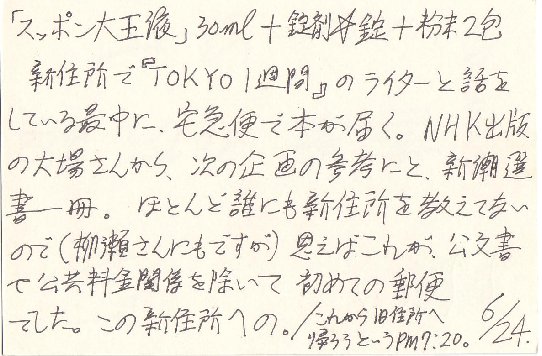 「スッポン大王液」30ml+錠剤4錠+粉末2包
新住所で『TOKYO1週間』のライターと話を
している最中に、宅急便で本が届く。NHK出版
の大場さんから、次の企画の参考にと、新潮選
書一冊。ほとんど誰にも新住所を教えてない
ので(柳瀬さんにもですが)思えばこれが、公文書
で公共料金関係を除いて初めての郵便
でした。この新住所への。/これから旧住所へ
帰ろうというPM7:20。6/24.